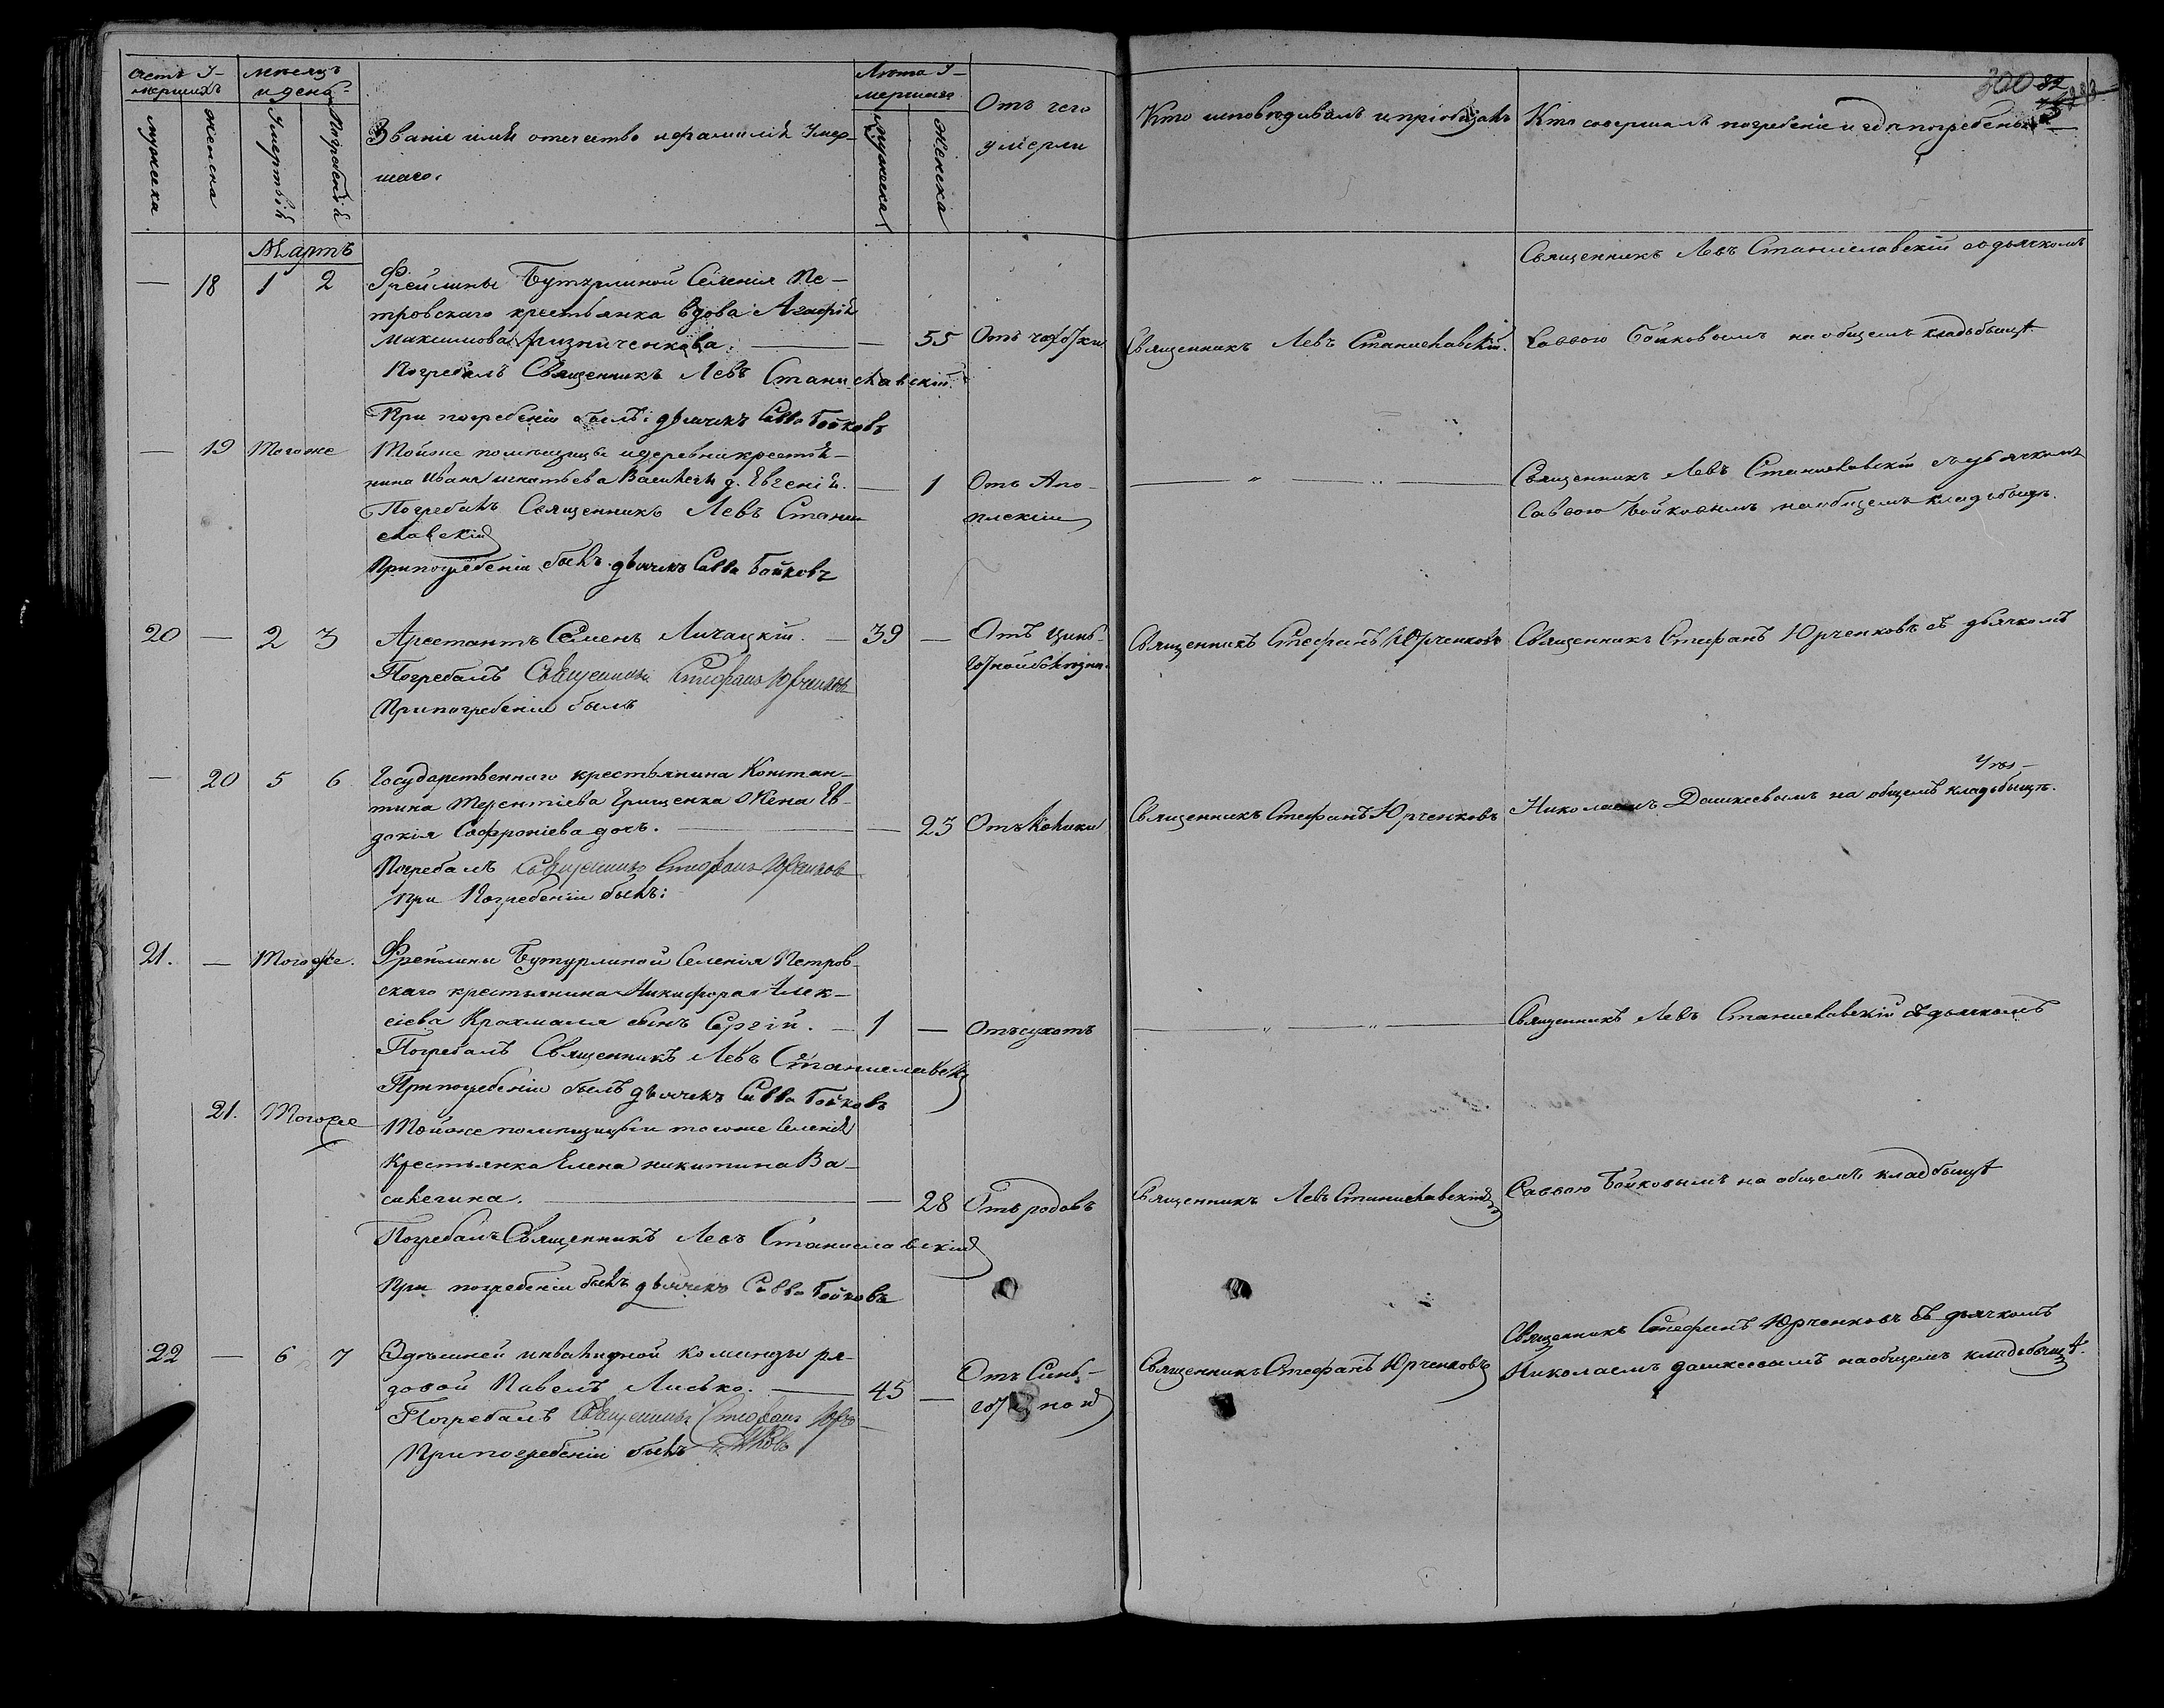 Счетъ У-
мершихъ
мужеска
женска
мѣсяцъ
и день
Умертвій
Погребеній
Званіе имя отчество и фамилія Умер-
шаго.
Лѣта У-
мершаго
мужеска
женска
Отъ чего
умерли
Кто исповѣдывалъ и пріобщалъ
Кто совершалъ погребеніе и гдѣ погребены
300
Мартъ
— 18 1 2 Фрейлины Бутурлиной Селенія Пе-
тровскаго крестьянка вдова Агафія
Максимова — 55 Отъ чахотки
Священникъ Левъ Станиславскій.
Священникъ Левъ Станиславскій съ дьячкомъ
Саввою Бойковымъ на общемъ кладбищѣ
Погребалъ Священникъ Левъ Станиславскій
При погребеніи былъ: дьячекъ Савва Бойковъ
— 19 Тогоже Тойже помѣщицы и деревни крестья-
нина Ивана Игнатьева д. Евгенія. — 1 Отъ Апо-
плексіи
Погребалъ Священникъ Левъ Стани-
славскій
При погребеніи былъ дьячекъ Савва Бойковъ
Священникъ Левъ Станиславскій съ дьячкомъ
Саввою Бойковымъ на общемъ кладбищѣ.
20 — 2 3 Арестантъ Семенъ Личацкій. — 39 — Отъ цинг-
готной болѣзни
Священникъ Стефанъ Юрченковъ
Священникъ Стефанъ Юрченковъ съ дьячкомъ
Погребалъ Священникъ Стефанъ Юрченковъ
При погребеніи былъ
— 20 5 6 Государственнаго крестьянина Констан-
тина Терентіева Грищенка жена Ев-
докія Софроніева дочь. — 23 Отъ Колики
Священникъ Стефанъ Юрченковъ
Николаемъ Дашкеевымъ на общемъ кладьбищѣ.
Погребалъ Священникъ Стефанъ Юрченковъ
при Погребеніи былъ:
21. — Тогоже. Фрейлины Бутурлиной Селенія Петров-
скаго крестьянина Никифора Алек-
сіева Крахмаля сынъ Сергій. — 1 — Отъ сухотъ
Священникъ Левъ Станиславскій съ дьячкомъ
Погребалъ Священникъ Левъ Станиславскій
При погребеніи былъ дьячекъ Савва Бойковъ
21. Тогоже Тойже помѣщицы и тогоже Селенія
Крестьянка Елена Никитина Ва-
силегина. — 28 Отъ родовъ
Священникъ Левъ Станиславскій
Саввою Бойковымъ на общемъ кладбищѣ
Погребалъ Священникъ Левъ Станиславскій
При погребеніи былъ дьячекъ Савва Бойковъ
22 — 6 7 Здѣшней инвалидной команды ря-
довой Павелъ Лисько. — 45 — Отъ Синг-
готной
Священникъ Стефанъ Юрченковъ
Священникъ Стефанъ Юрченковъ съ дьячкомъ
Николаемъ Дашкеевымъ на общемъ кладьбищѣ.
Погребалъ Священникъ Стефанъ Юрче-
нковъ
При погребеніи былъ